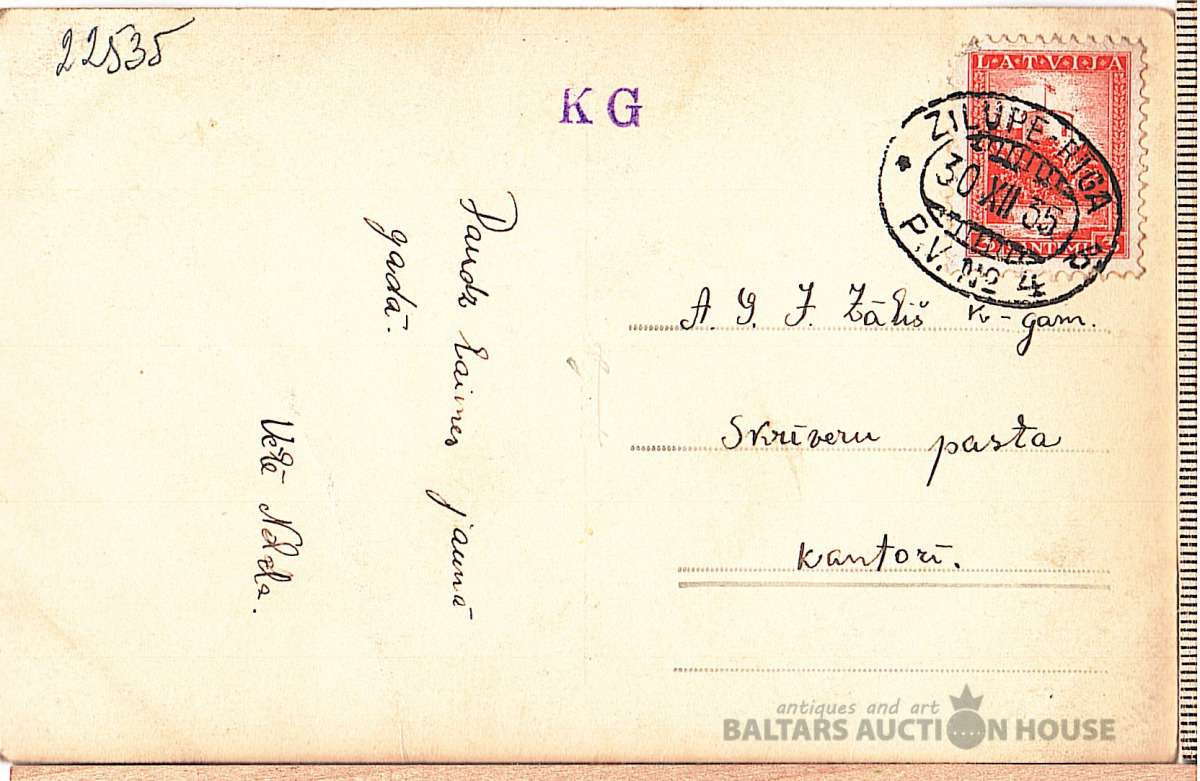 22535
KG
LATVIJA
ZILUPE-RIGA
30 XII 35
P.V. № 4
Daudz laimes jaunā
gadā.
Vēlē Nelda.
A. G. J. Zālīt k-gam.
Skrīveru pasta
kantorī.
antiques and art
BALTARS AUCTION HOUSE